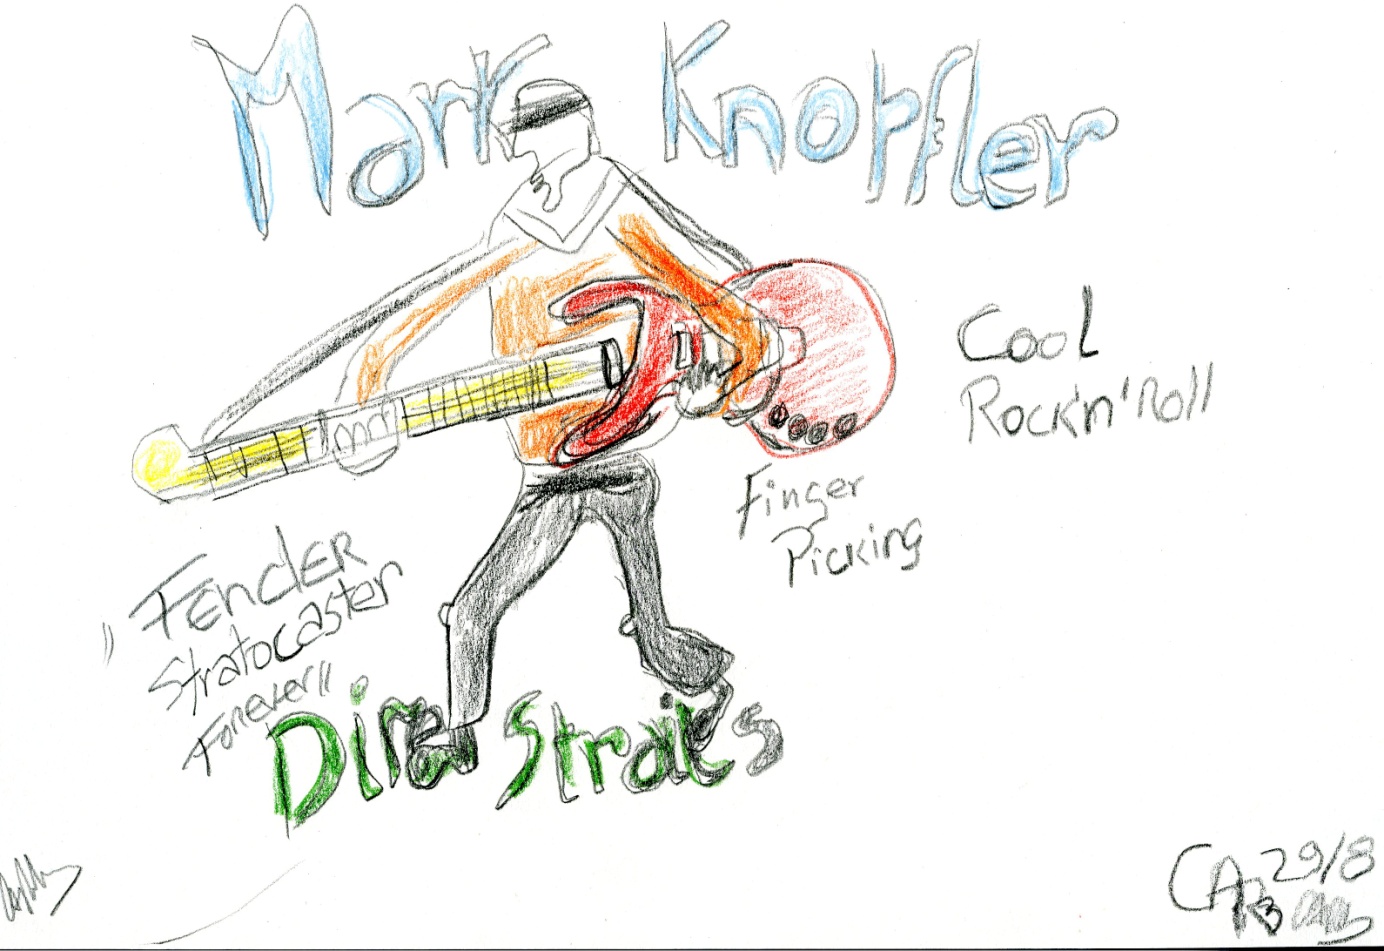 Mark Knopfler
Cool
Rock'n'Roll
Finger
Picking
"Fender
Stratocaster
Forever"
Dire Straits
29/8